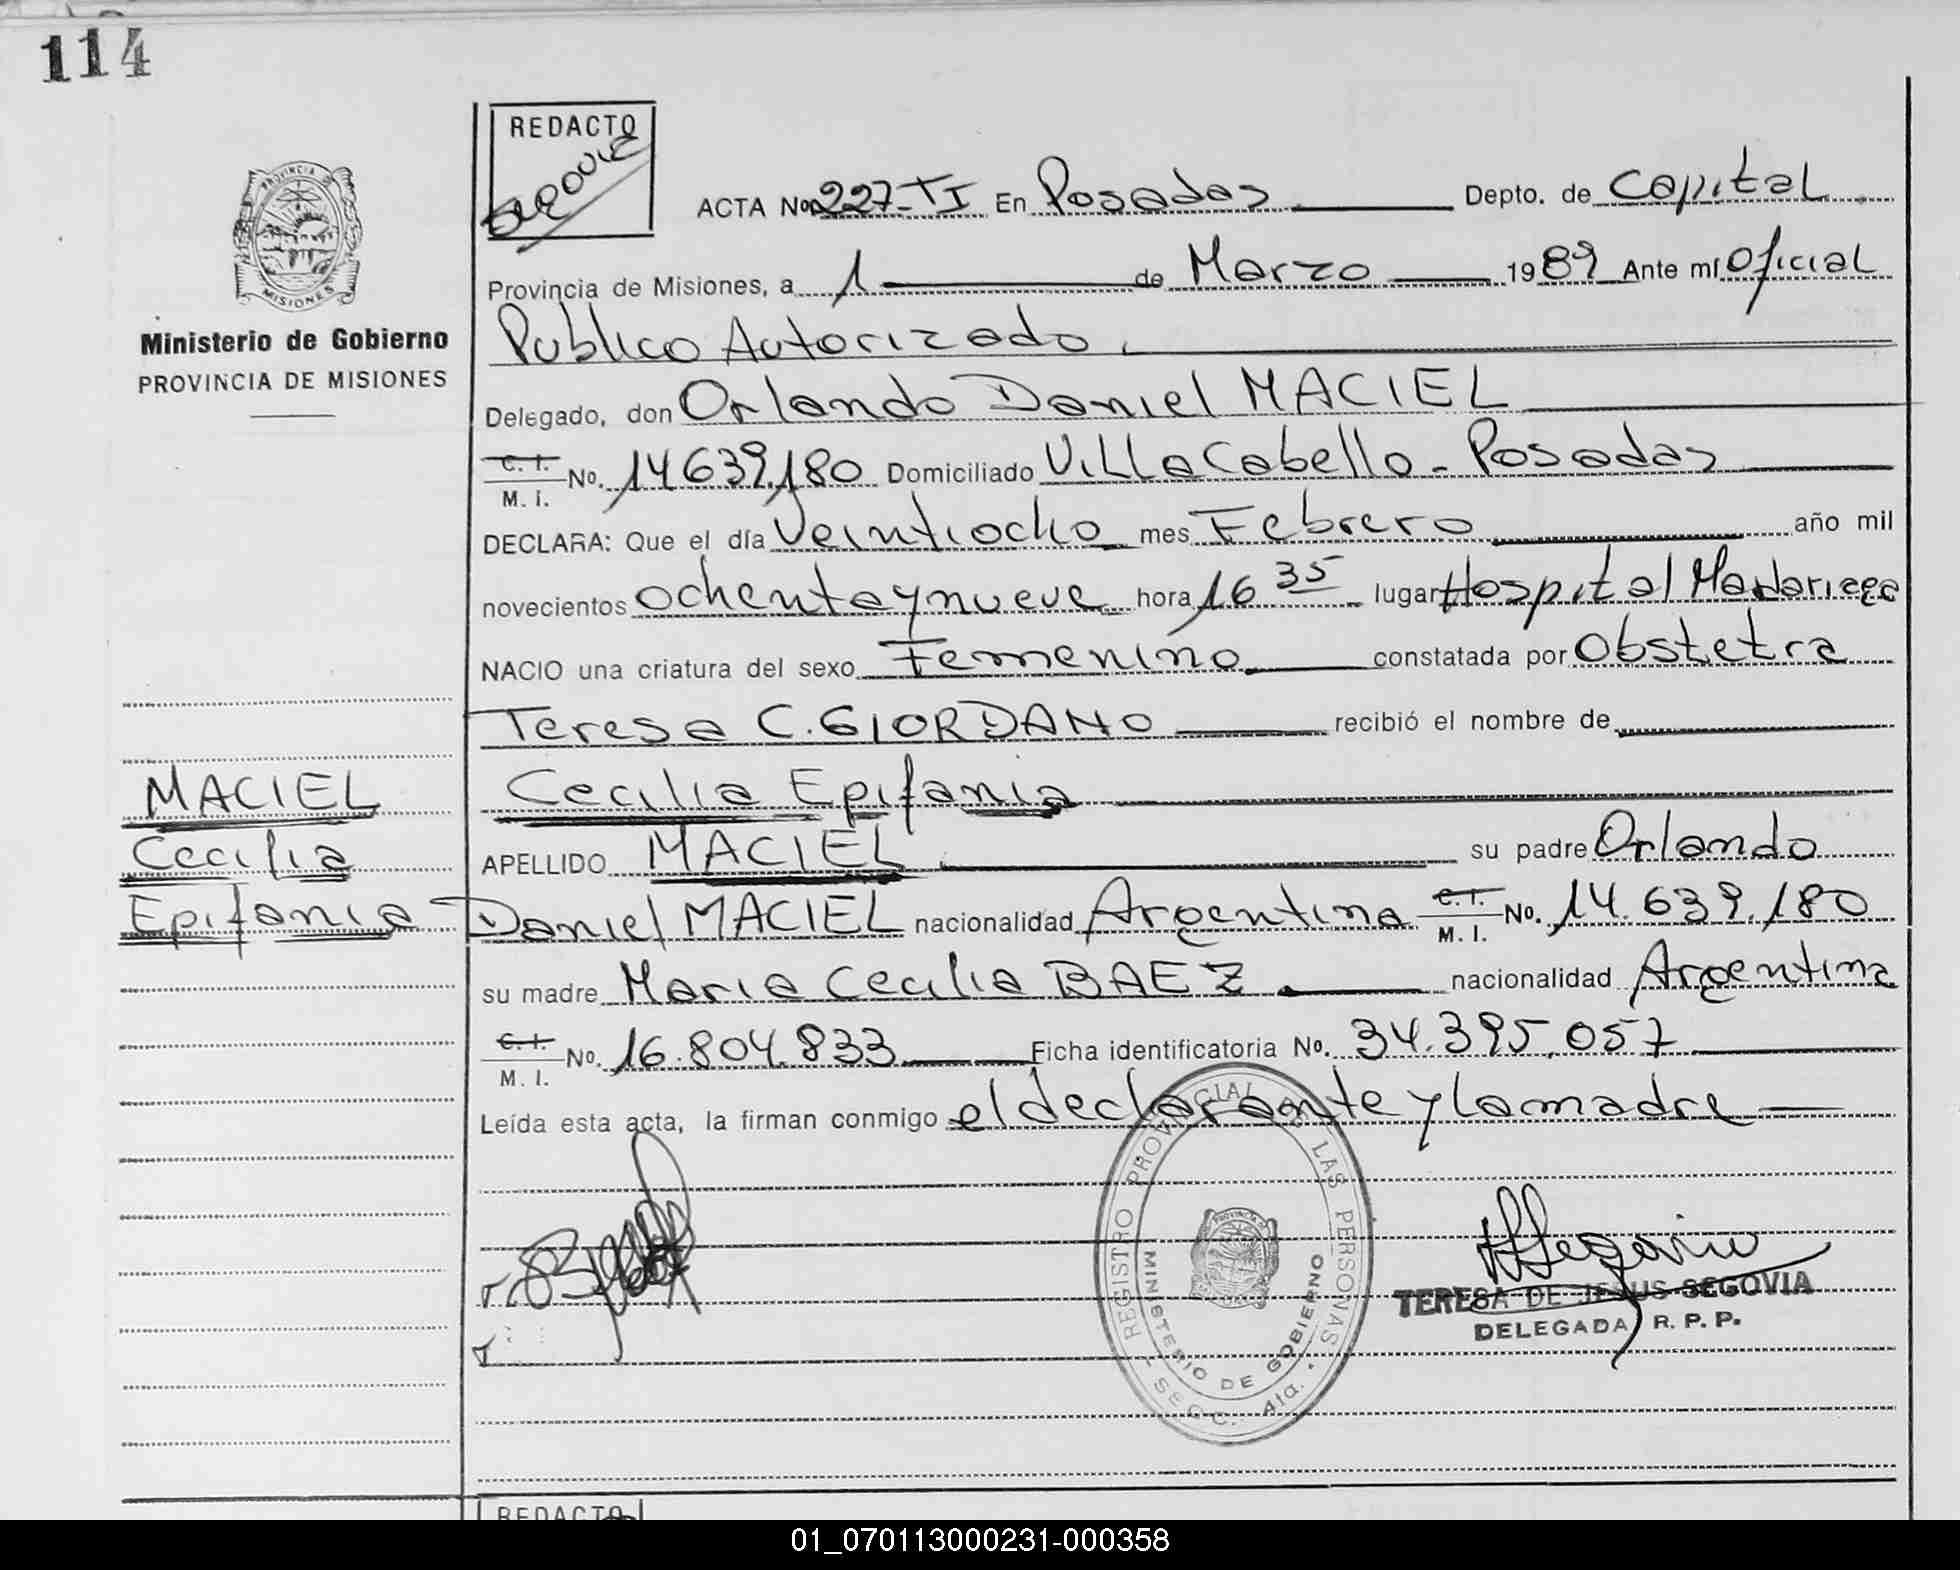 114
REDACTO
ACTA No. 227-TI En Posadas Depto. de Capital
Provincia de Misiones, a 1 de Marzo 1989 Ante mí Oficial
Publico Autorizado.
PROVINCIA DE
MISIONES
Ministerio de Gobierno
PROVINCIA DE MISIONES
Delegado, don Orlando Daniel MACIEL
C. I.
M. I. No. 14.639.180 Domiciliado Villa Cabello - Posadas
DECLARA: Que el día Veintiocho mes Febrero año mil
novecientos ochenta y nueve hora 16 35 lugar Hospital Madariaga
NACIO una criatura del sexo Femenino constatada por Obstetra
Teresa C. GIORDANO recibió el nombre de
MACIEL
Cecilia
Epifania
Cecilia Epifania
APELLIDO MACIEL su padre Orlando
Daniel MACIEL nacionalidad Argentina C. I. M. I. No. 14.639.180
su madre Maria Cecilia BAEZ nacionalidad Argentina
C. I.
M. I. No. 16.804.833 Ficha identificatoria No. 34.395.057
Leída esta acta, la firman conmigo el declarante y la madre
REGISTRO PROVINCIAL DE LAS PERSONAS
MINISTERIO DE GOBIERNO
TERESA DE JESUS SEGOVIA
DELEGADA R. P. P.
REDACTO
01_070113000231-000358